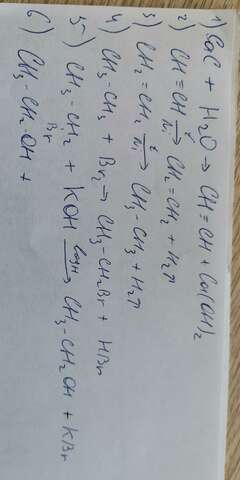 1) CaC + H2O → CH≡CH + Ca(OH)2
2) CH≡CH →(t, Ni) CH2=CH2 + H2↑
3) CH2=CH2 →(t, Ni) CH3-CH3 + H2↑
4) CH3-CH3 + Br2 → CH3-CH2Br + HBr
5) CH3-CH2 + KOH → CH3-CH2OH + KBr
Br
6) CH3-CH2-OH +